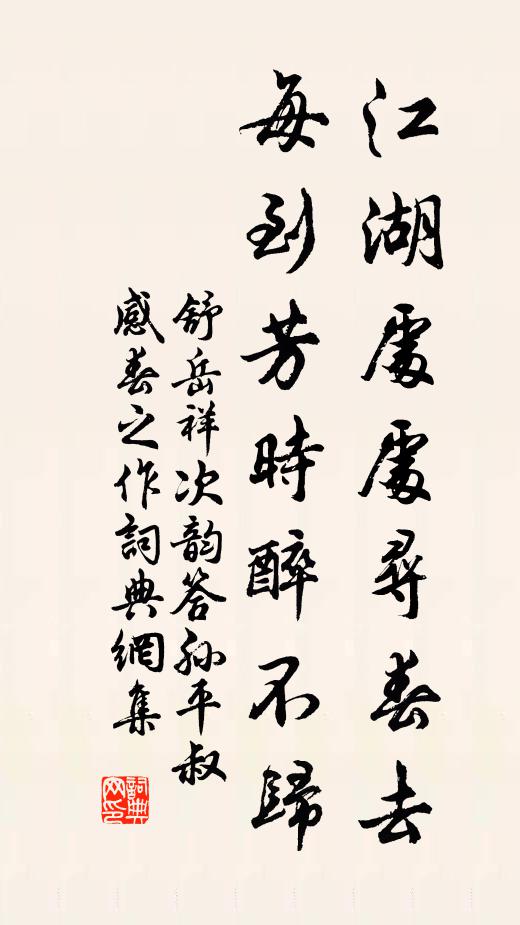 江湖處處尋春去
每到芳時醉不歸
舒岳祥次韵答孙平叔
感春之作詞典網集
詞典
网印